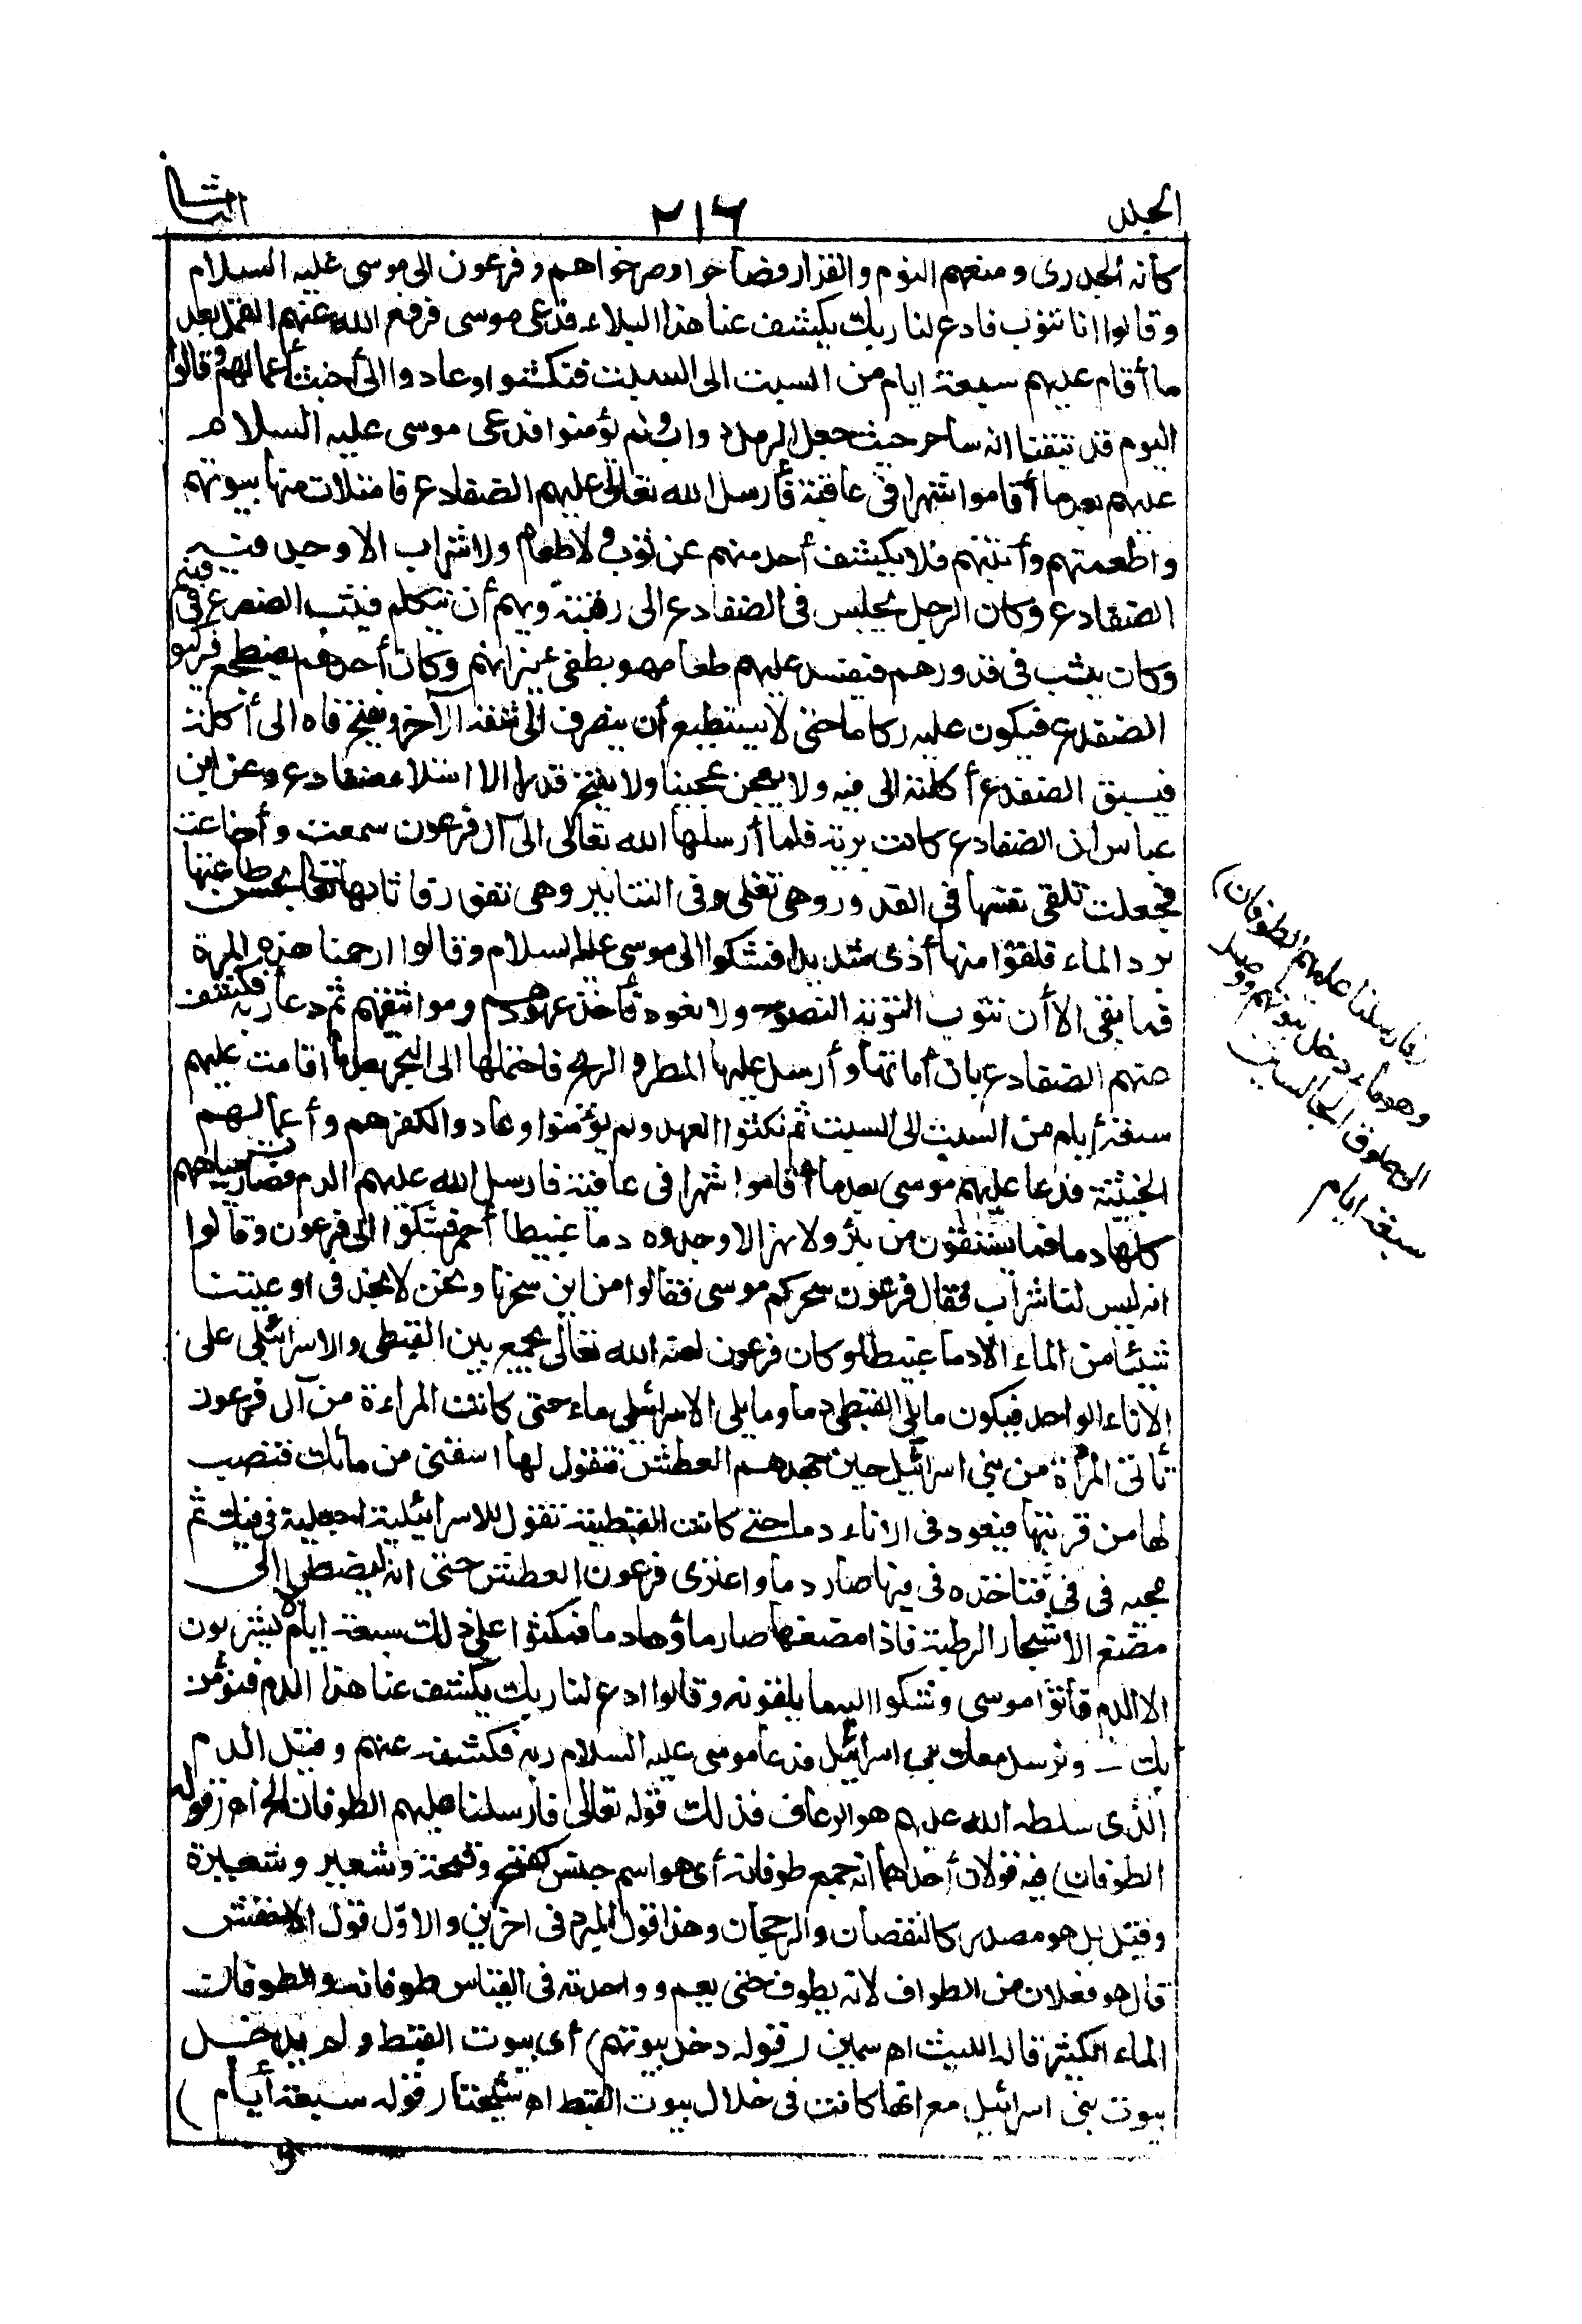 الجلد ٢١٦ الثانى
كأنه الجدرى ومنعهم النوم والقرار فصاحوا وصرخوا هم وفرعون الى موسى عليه السلام
وقالوا انا نتوب فادع لنا ربك يكشف عنا هذا البلاء فدعى موسى فرفع الله عنهم القمل بعد
ما أقام عليهم سبعة ايام من السبت الى السبت فنكثوا وعادوا الى أخبث أعمالهم وقالوا
اليوم قد تيقنا انه ساحر حيث جعل الرمل دواب ولم يؤمنوا فدعى موسى عليه السلام
عليهم بعد ما أقاموا شهرا فى عافية فأرسل الله تعالى عليهم الضفادع فامتلات منها بيوتهم
واطعمتهم وأنيتهم فلا يكشف أحد منهم عن ثوب ولا طعام ولا شراب الا وجد فيه
الضفادع وكان الرجل يجلس فى الضفادع الى رقبته ويهم أن يتكلم فيثب الضفدع فى فيه
وكان يثب فى قدورهم فيفسد عليهم طعامهم ويطفى نيرانهم وكان أحدهم يضطجع فركبو
الضفدع فيكون عليه ركاما حتى لا يستطيع أن ينصرف الى شقه الآخر ويفتح فاه الى أكلته
فيسبق الضفدع أكلته الى فيه ولا يعجن عجينا ولا يفتح قدرا الا امتلاء ضفادع وعن ابن
عباس ان الضفادع كانت برية فلما أرسلها الله تعالى الى آل فرعون سمعت وأطاعت
فجعلت تلقى نفسها فى القدور وهى تغلى وفى التنانير وهى تفور فاثابها تعالى بحسن طاعتها
برد الماء فلقوا منها أذى شديدا فشكوا الى موسى عليه السلام وقالوا ارحمنا هذه المرة
فما بقى الا أن نتوب التوبة النصوح ولا نعود فأخذ عهودهم ومواثيقهم ثم دعا ربه فكشف
عنهم الضفادع بان أماتها وأرسل عليها المطر والريح فاحتملها الى البحر بعد ما اقامت عليهم
سبعة أيام من السبت الى السبت ثم نكثوا العهد ولم يؤمنوا وعادوا لكفرهم وأعمالهم
الخبيثة فدعا عليهم موسى بعد ما أقاموا شهرا فى عافية فارسل الله عليهم الدم فصارت مياههم
كلها دما فما يستقون من بئر ولا نهر الا وجدوه دما عبيطا أحمر فشكوا الى فرعون وقالوا
انه ليس لنا شراب فقال فرعون سحركم موسى فقالوا من اين سحرنا ونحن لا نجد فى اوعيتنا
شيئا من الماء الا دما عبيطا وكان فرعون لعنه الله تعالى يجمع بين القبطى والاسرائيلى على
الاناء الواحد فيكون ما يلى القبطى دما وما يلى الاسرائيلى ماء حتى كانت المراءة من آل فرعون
تأتى المرأة من بنى اسرائيل حين جهدهم العطش فتقول لها اسقنى من مائك فتصب
لها من قربتها فيعود فى الاناء دما حتى كانت القبطية تقول للاسرائيلية اجعليه فى فيك ثم
مجيه فى فى فتاخذه فى فيها صار دما واعترى فرعون العطش حتى انه ليضطر الى
مضغ الاشجار الرطبة فاذا مضغها صار ماؤها دما فمكثوا على ذلك سبعة ايام لا يشربون
الا الدم فأتوا موسى وشكوا اليه ما يلقونه وقالوا ادع لنا ربك يكشف عنا هذا الدم فنؤمن
بك ونرسل معك بنى اسرائيل فدعا موسى عليه السلام ربه فكشف عنهم وقيل الدم
الذى سلطه الله عليهم هو الرعاف فذلك قوله تعالى فأرسلنا عليهم الطوفان الخ اه (قوله
الطوفان) فيه قولان أحدهما انه جمع طوفانة أى هو اسم جنس كقمح وقمحة وشعير وشعيرة
وقيل بل هو مصدر كالنقصان والرجحان وهذا قول المبرد فى اخرين والاول قول الاخفش
قال هو فعلان من الطواف لانه يطوف حتى يعم وواحدته فى القياس طوفانة والطوفان
الماء الكثير قاله الليث اه سمين (قوله دخل بيوتهم) أى بيوت القبط ولم يدخل
بيوت بنى اسرائيل مع انها كانت فى خلال بيوت القبط اه شيخنا (قوله سبعة أيام)
(فارسلنا عليهم الطوفان)
وهو ماء دخل بيوتهم ووصل
الى حلوق الجالسين
سبعة ايام